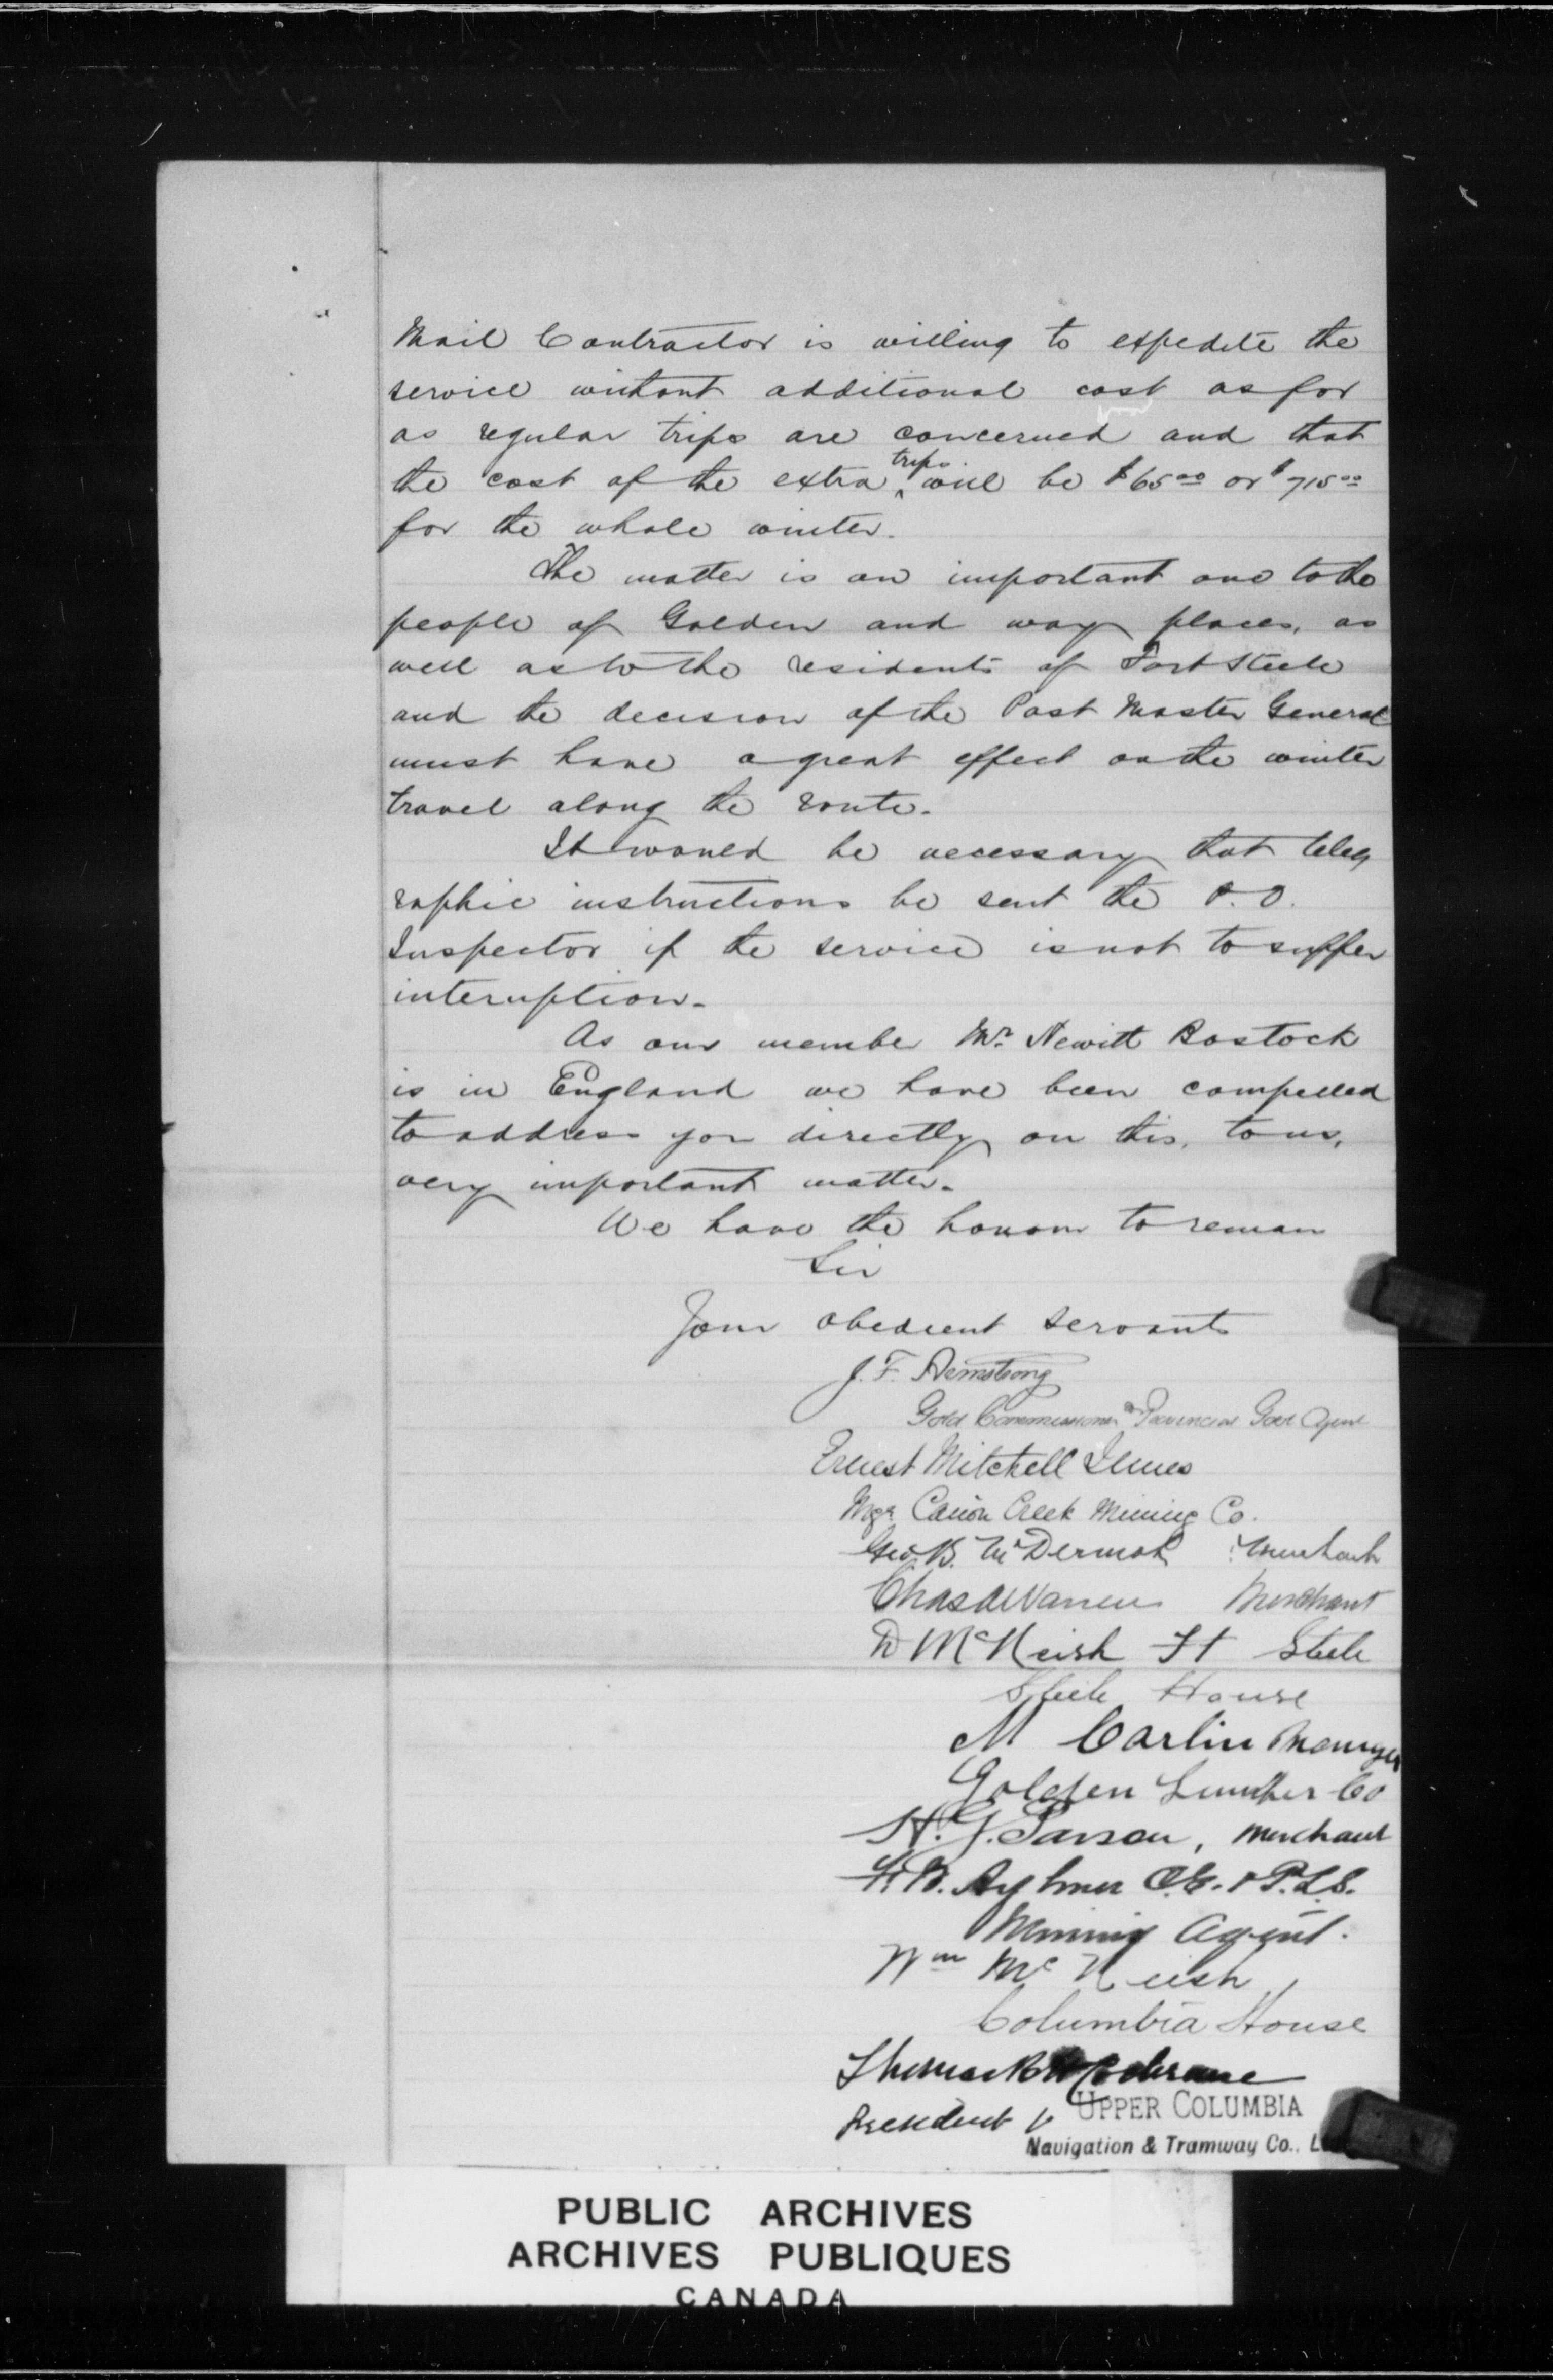 Mail Contractor is willing to expedite the
service without additional cost as far
as regular trips are concerned and that
the cost of the extra trips will be $65.00 or $715.00
for the whole winter.
The matter is an important one to the
people of Golden and way places, as
well as to the residents of Fort Steele
and the decision of the Post Master General
must have a great effect on the winter
travel along the route.
It would be necessary that teleg
raphic instructions be sent the P.O.
Inspector if the service is not to suffer
interuption.
As our member Mr. Hewitt Bostock
is in England we have been compelled
to address you directly on this, to us,
very important matter.
We have the honour to remain
Sir
Your obedient servants
J. F. Armstrong
Gold Commissioner & Provincial Govt Agent
Ernest Mitchell
Mgr Cañon Creek Mining Co.
Geo. B. McDermot Merchant
Chas A Warren Merchant
D McNeish Ft Steele
Steele House
M Carlin Manager
Golden Lumber Co
H. G. Parson, Merchant
F. W. Aylmer C.E. & P.L.S.
Mining Agent.
Wm McNeish
Columbia House
Thomas Cochrane
President
UPPER COLUMBIA
Navigation & Tramway Co.,
PUBLIC ARCHIVES
ARCHIVES PUBLIQUES
CANADA